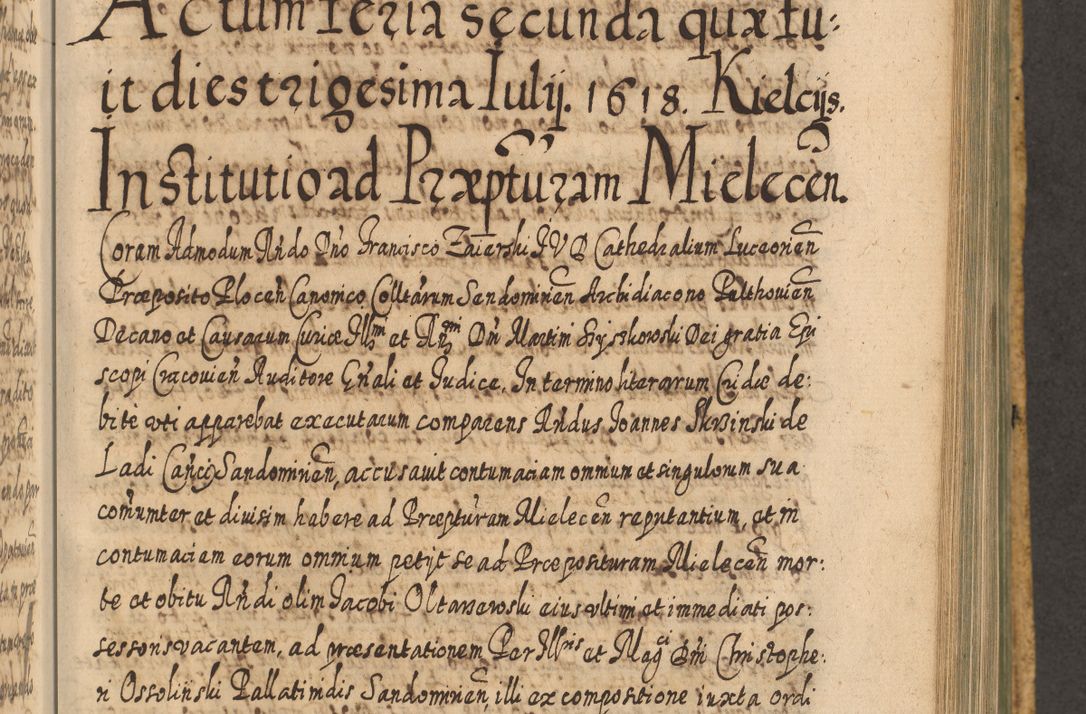 Actum feria secunda quæ fu:
it dies trigesima Iulij. 1618. Kielcijs.
Institutio ad Præpturam Mielecen.
Coram Admodum Rndo Dno Francisco Zaierski IVD Cathedralium Luceorien
Præposito Plocen Canonico Colltarum Sendomirien Archidiacono Palthovien
Decano et Causarum Curiæ Illmi et Rmi Dni Martini Szyszkowski Dei gratia Epi
scopi Cracovien Auditore Gnali et Iudice. In termino literarum Cridæ de:
bite uti apparebat executarum comparens Rndus Ioannes Skrzinski de
Ladi Sandomirien, accusauit contumaciam omnium et singulorum sua
com̃uniter et diuisim habere ad Præpturam Mielecen reputantium, et in
contumaciam eorum omnium petijt se ad Præposituram Mielecen mor:
te et obitu Rndi olim Iacobi eius ultimi et immediati pos:
sessoris vacantem, ad præsentationem Per Illris et Magci Dni Christophe:
ri Ossoliński Pallatinidis Sandomirien, illi ex compositione iuxta ordi